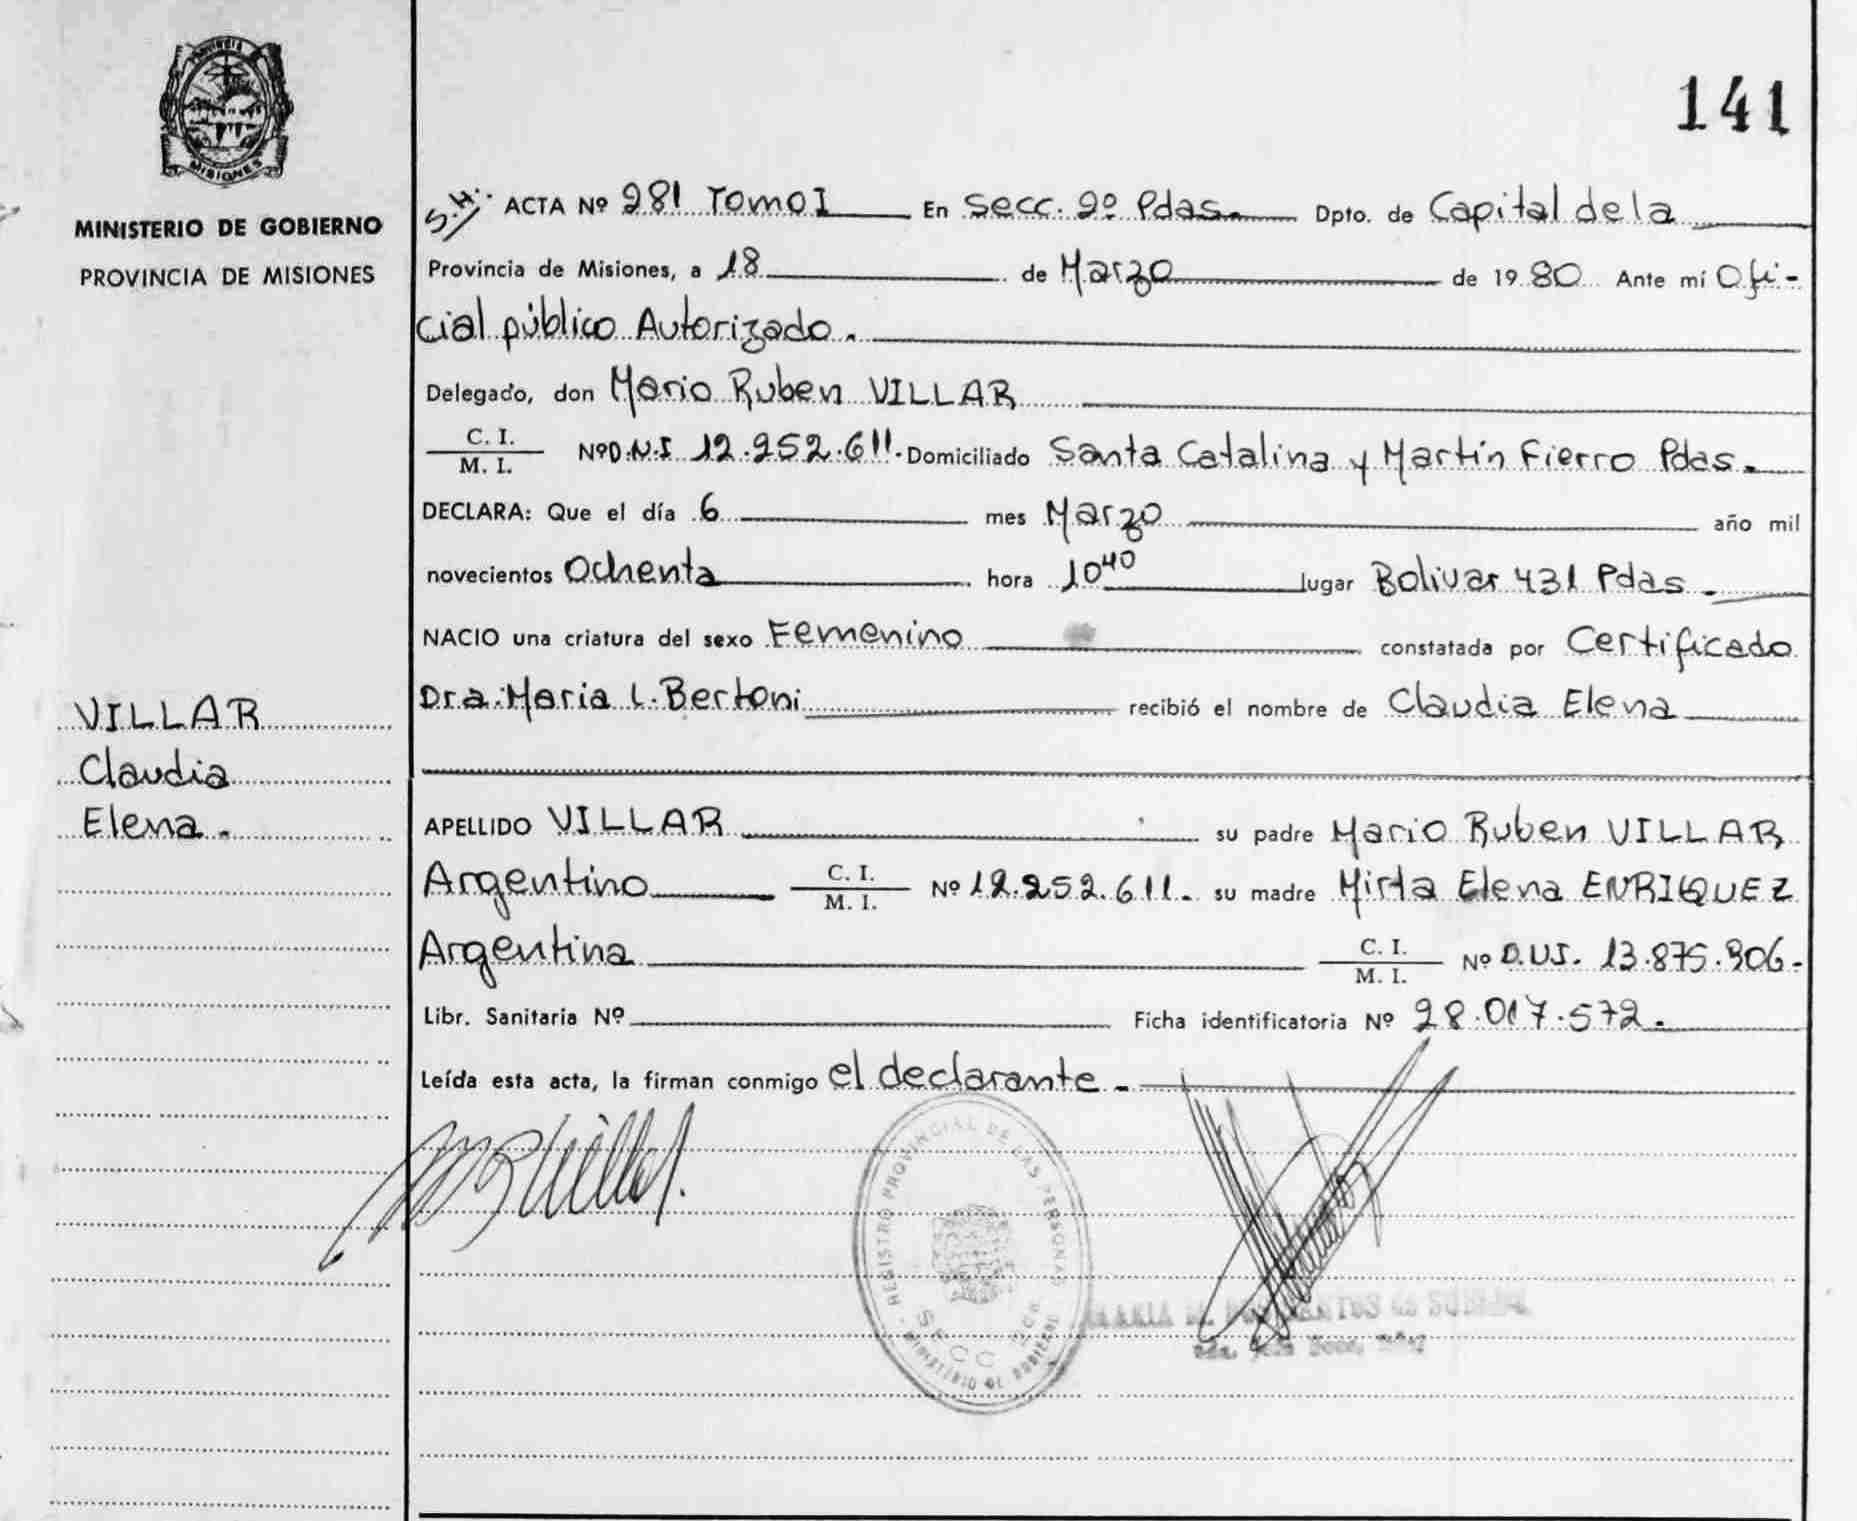 PROVINCIA
MISIONES
MINISTERIO DE GOBIERNO
PROVINCIA DE MISIONES
VILLAR
Claudia
Elena.
141
S.H. ACTA Nº 281 Tomo I En Secc. 2º Pdas. Dpto. de Capital de la
Provincia de Misiones, a 18 de Marzo de 1980 Ante mí Ofi-
cial público Autorizado.
Delegado, don Mario Ruben VILLAR
C. I.
M. I. Nº D.N.I 12.252.611. Domiciliado Santa Catalina y Martín Fierro Pdas.
DECLARA: Que el día 6 mes Marzo año mil
novecientos Ochenta hora 10 40 lugar Bolivar 431 Pdas.
NACIO una criatura del sexo Femenino constatada por Certificado
Dra. Maria L. Bertoni recibió el nombre de Claudia Elena
APELLIDO VILLAR su padre Mario Ruben VILLAR
Argentino C. I.
M. I. Nº 12.252.611. su madre Mirta Elena ENRIQUEZ
Argentina C. I.
M. I. Nº D.NI. 13.875.906.
Libr. Sanitaria Nº Ficha identificatoria Nº 28.017.572.
Leída esta acta, la firman conmigo el declarante.
REGISTRO PROVINCIAL DE LAS PERSONAS
SECC
MARIA